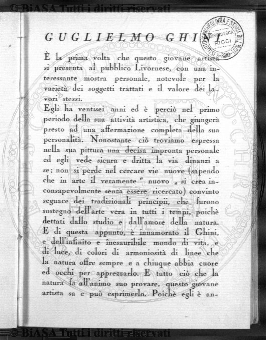 GUGLIELMO GHINI
È la prima volta che questo giovane artista
si presenta al pubblico Livornese, con una in-
teressante mostra personale, notevole per la
varietà dei soggetti trattati e il valore dei la-
vori stessi.
Egli ha ventisei anni ed è perciò nel primo
periodo della sua attività artistica, che giungerà
presto ad una affermazione completa della sua
personalità. Nonostante ciò troviamo espressa
nella sua pittura una decisa impronta personale
ed egli vede sicura e dritta la via dinanzi a
se; non si perde nel cercare vie nuove (sapendo
che in arte il veramente " nuovo " si crea in-
consapevolmente senza essere ricercato) convinto
seguace dei tradizionali principii, che furono
sostegno dell'arte vera in tutti i tempi, poichè
dettati dallo studio e dall'amore della natura.
E di questa appunto, è innamorato il Ghini,
e dell'infinito e inesauribile mondo di vita, e
di luce, di colori di armoniosità di linee che
la natura offre sempre e a chiunque abbia cuore
ed occhi per apprezzarlo. E tutto ciò che la
natura fa all'animo suo provare, questo giovane
artista sa e può esprimerlo. Poichè egli è an-
© BIASA Tutti i diritti riservati